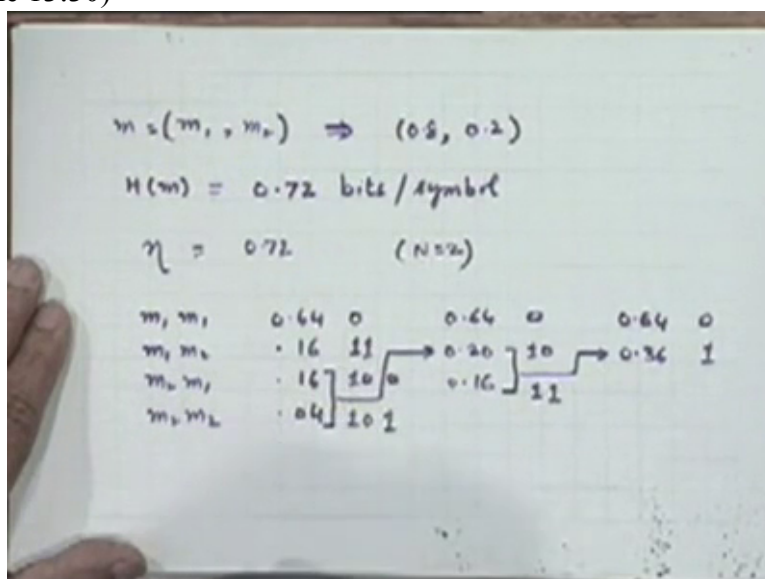 m = (m₁, m₂) ⇒ (0.8, 0.2)
H(m) = 0.72 bits/symbol
η = 0.72 (N=2)
m₁ m₁ 0.64 0 0.64 0 0.64 0
m₁ m₂ .16 11 0.20 10 0.36 1
m₂ m₁ .16 100 0.16 11
m₂ m₂ .04 101